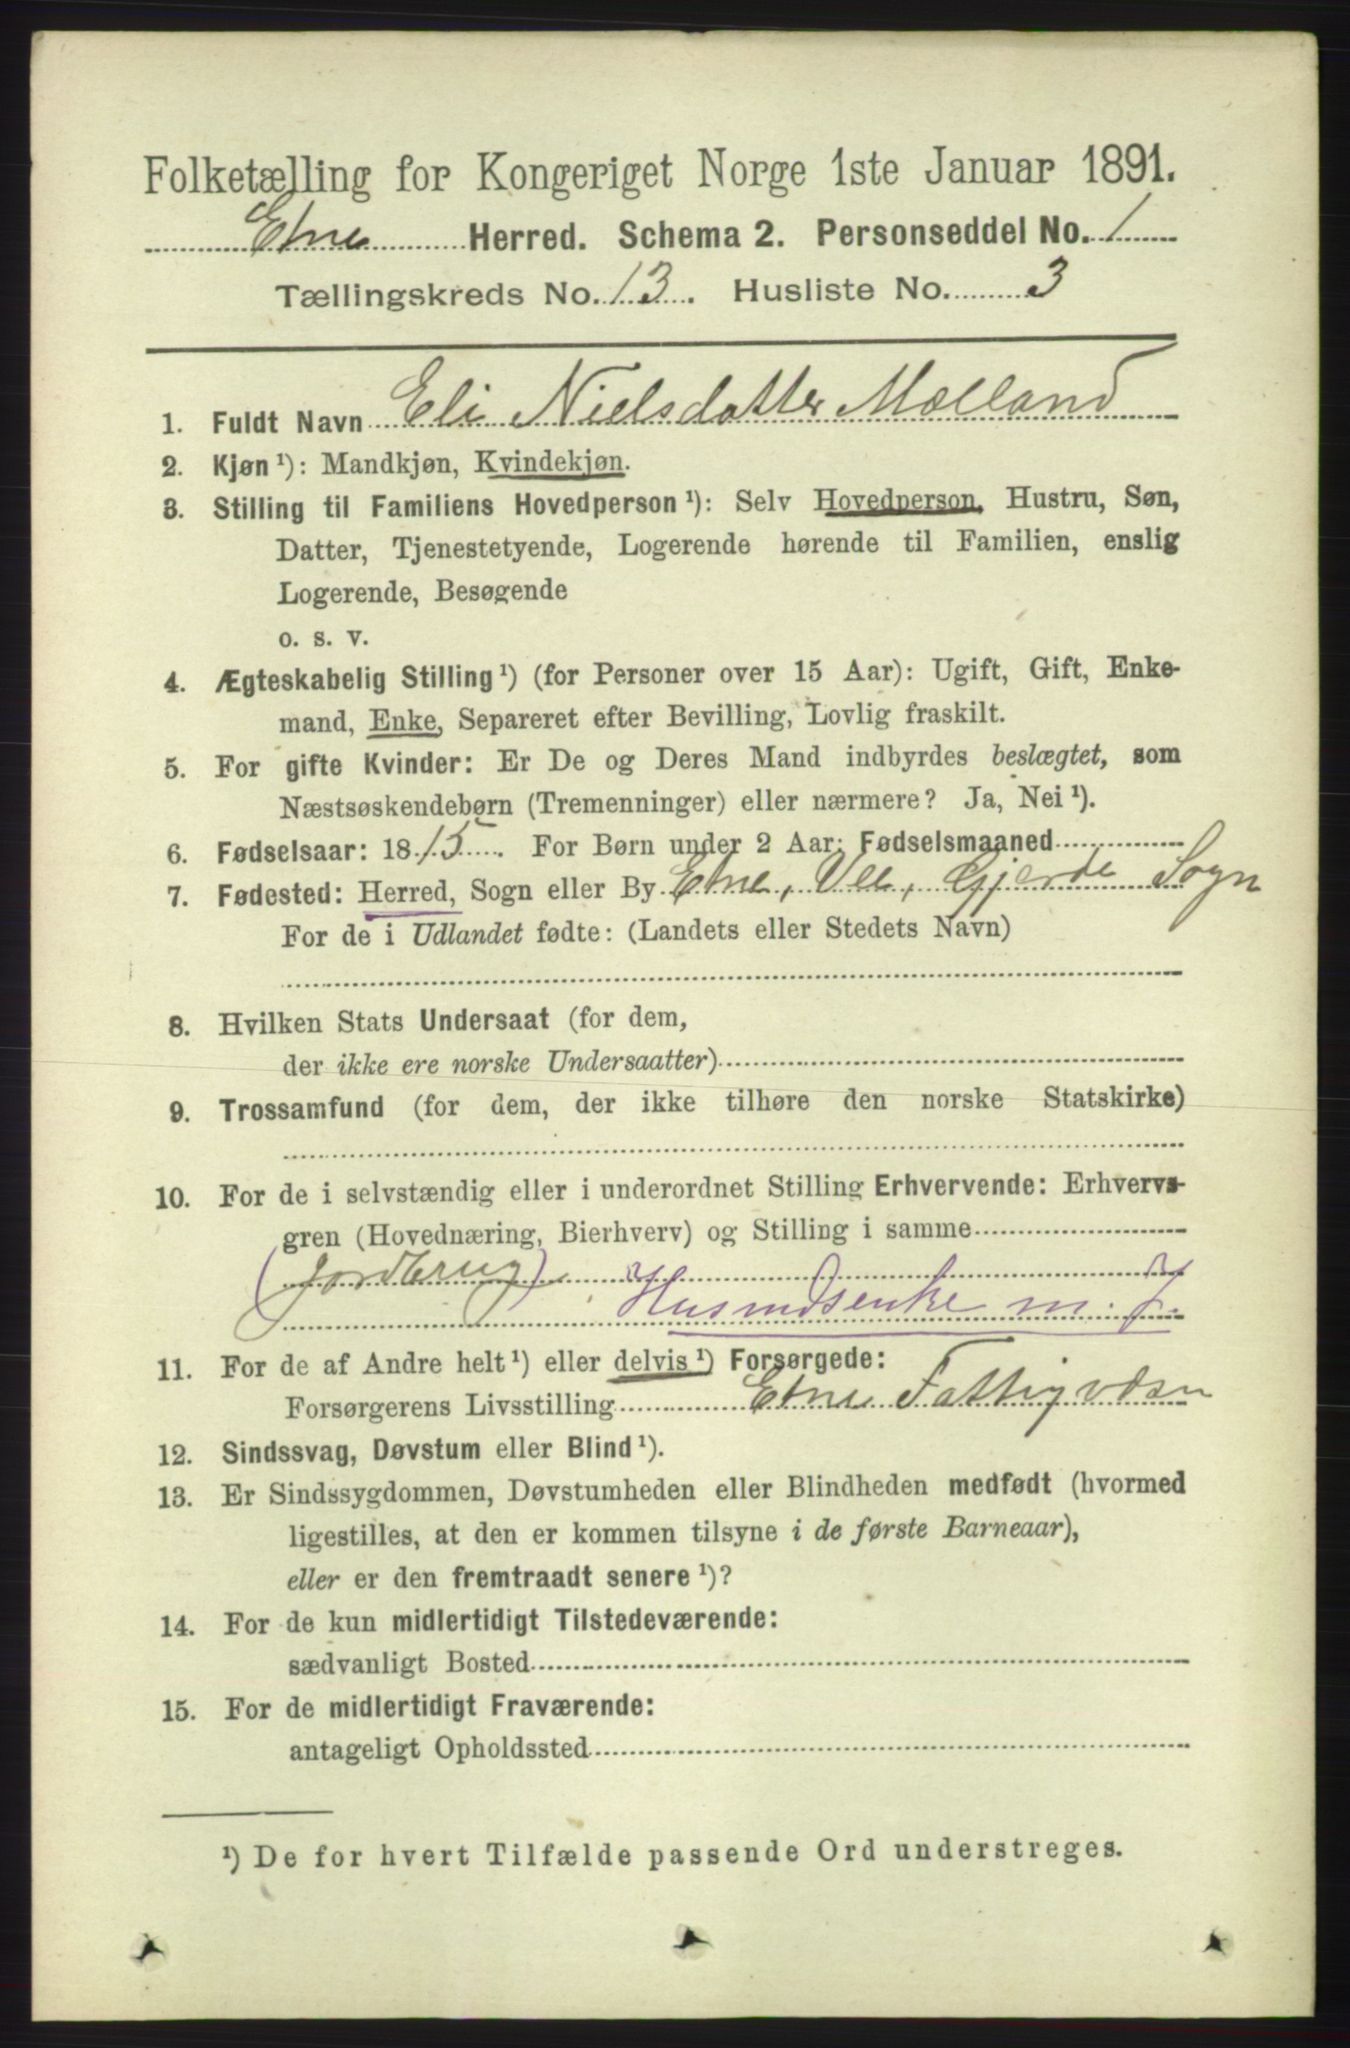 Folketælling for Kongeriget Norge 1ste Januar 1891.
Etne Herred. Schema 2. Personseddel No. 1
Tællingskreds No. 13. Husliste No. 3
1. Fuldt Navn Eli Nielsdatter Mælland
2. Kjøn ¹): Mandkjøn, Kvindekjøn.
3. Stilling til Familiens Hovedperson ¹): Selv Hovedperson, Hustru, Søn,
Datter, Tjenestetyende, Logerende hørende til Familien, enslig
Logerende, Besøgende
o. s. v.
4. Ægteskabelig Stilling ¹) (for Personer over 15 Aar): Ugift, Gift, Enke-
mand, Enke, Separeret efter Bevilling, Lovlig fraskilt.
5. For gifte Kvinder: Er De og Deres Mand indbyrdes beslægtet, som
Næstsøskendebørn (Tremenninger) eller nærmere? Ja, Nei ¹).
6. Fødselsaar: 1815. For Børn under 2 Aar: Fødselsmaaned
7. Fødested: Herred, Sogn eller By Etne, Vee, Gjerde Sogn
For de i Udlandet fødte: (Landets eller Stedets Navn)
8. Hvilken Stats Undersaat (for dem,
der ikke ere norske Undersaatter)
9. Trossamfund (for dem, der ikke tilhøre den norske Statskirke)
10. For de i selvstændig eller i underordnet Stilling Erhvervende: Erhvervs-
gren (Hovednæring, Bierhverv) og Stilling i samme
(Jordbrug)
Husmdsenke m. J.
11. For de af Andre helt ¹) eller delvis ¹) Forsørgede:
Forsørgerens Livsstilling Etne Fattigvæsn
12. Sindssvag, Døvstum eller Blind ¹).
13. Er Sindssygdommen, Døvstumheden eller Blindheden medfødt (hvormed
ligestilles, at den er kommen tilsyne i de første Barneaar),
eller er den fremtraadt senere ¹)?
14. For de kun midlertidigt Tilstedeværende:
sædvanligt Bosted
15. For de midlertidigt Fraværende:
antageligt Opholdssted
¹) De for hvert Tilfælde passende Ord understreges.